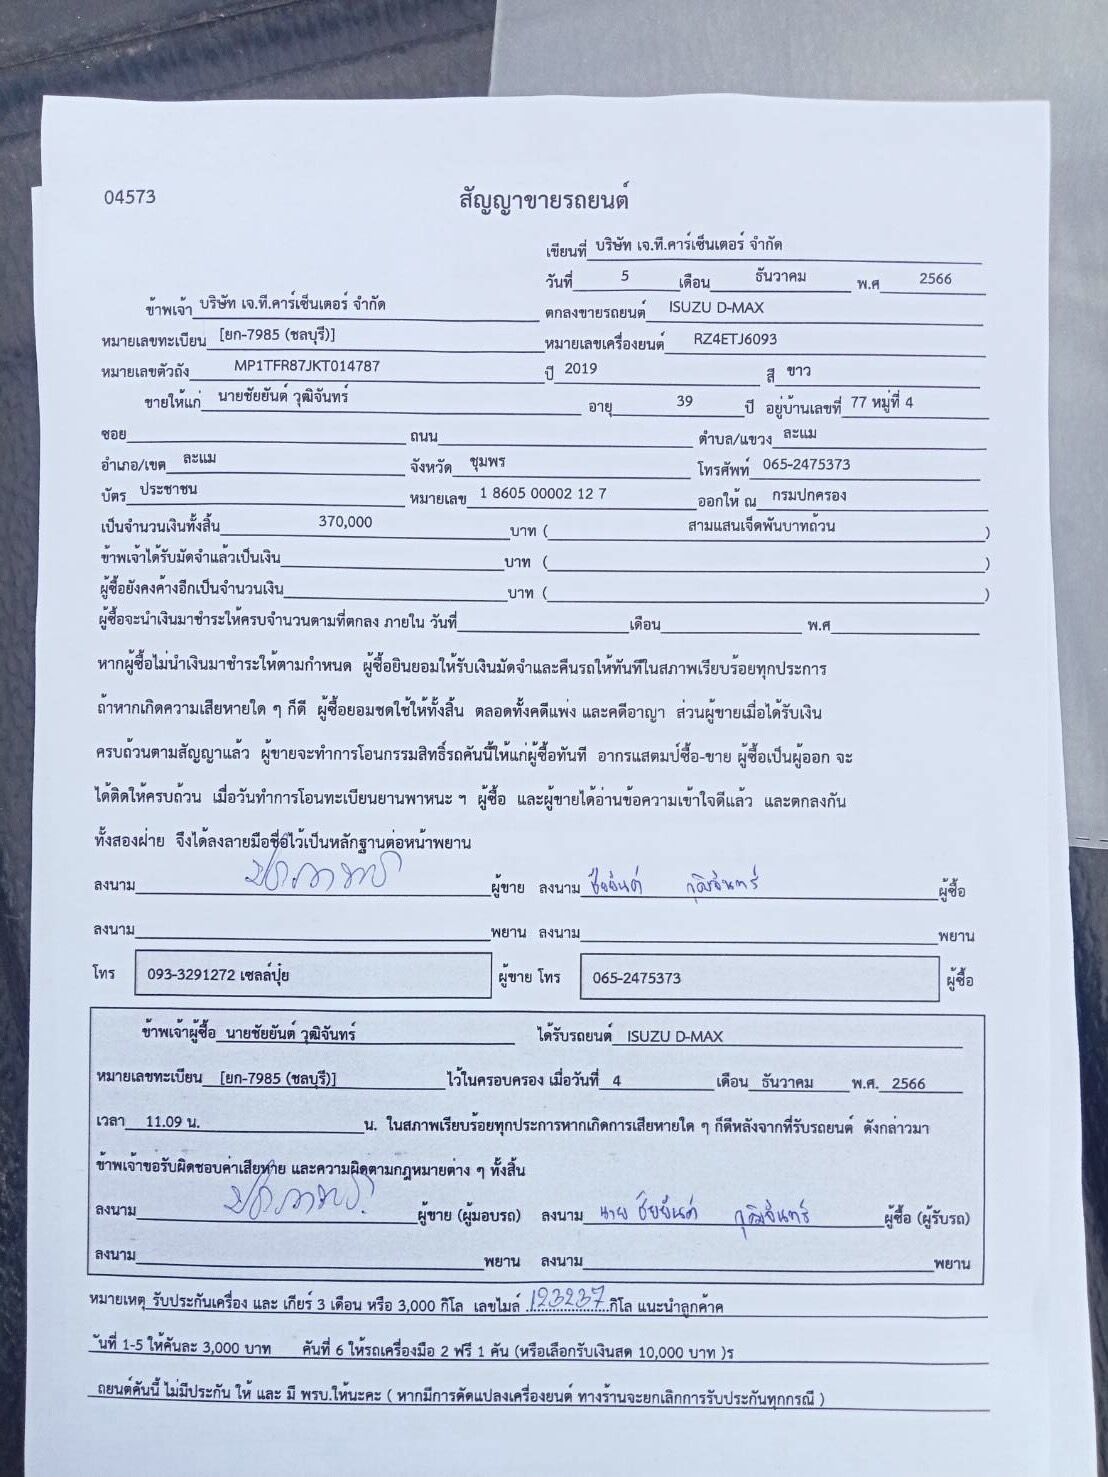 04573
สัญญาขายรถยนต์
เขียนที่ บริษัท เจ.ที.คาร์เซ็นเตอร์ จำกัด
วันที่ 5 เดือน ธันวาคม พ.ศ 2566
ข้าพเจ้า บริษัท เจ.ที.คาร์เซ็นเตอร์ จำกัด ตกลงขายรถยนต์ ISUZU D-MAX
หมายเลขทะเบียน [ยก-7985 (ชลบุรี)] หมายเลขเครื่องยนต์ RZ4ETJ6093
หมายเลขตัวถัง MP1TFR87JKT014787 ปี 2019 สี ขาว
ขายให้แก่ นายชัยยันต์ วุฒิจันทร์ อายุ 39 ปี อยู่บ้านเลขที่ 77 หมู่ที่ 4
ซอย ถนน ตำบล/แขวง ละแม
อำเภอ/เขต ละแม จังหวัด ชุมพร โทรศัพท์ 065-2475373
บัตร ประชาชน หมายเลข 1 8605 00002 12 7 ออกให้ ณ กรมปกครอง
เป็นจำนวนเงินทั้งสิ้น 370,000 บาท ( สามแสนเจ็ดพันบาทถ้วน )
ข้าพเจ้าได้รับมัดจำแล้วเป็นเงิน บาท ( )
ผู้ซื้อยังคงค้างอีกเป็นจำนวนเงิน บาท ( )
ผู้ซื้อจะนำเงินมาชำระให้ครบจำนวนตามที่ตกลง ภายใน วันที่ เดือน พ.ศ
หากผู้ซื้อไม่นำเงินมาชำระให้ตามกำหนด ผู้ซื้อยินยอมให้รับเงินมัดจำและคืนรถให้ทันทีในสภาพเรียบร้อยทุกประการ
ถ้าหากเกิดความเสียหายใด ๆ ก็ดี ผู้ซื้อยอมชดใช้ให้ทั้งสิ้น ตลอดทั้งคดีแพ่ง และคดีอาญา ส่วนผู้ขายเมื่อได้รับเงิน
ครบถ้วนตามสัญญาแล้ว ผู้ขายจะทำการโอนกรรมสิทธิ์รถคันนี้ให้แก่ผู้ซื้อทันที อากรแสตมป์ซื้อ-ขาย ผู้ซื้อเป็นผู้ออก จะ
ได้ติดให้ครบถ้วน เมื่อวันทำการโอนทะเบียนยานพาหนะ ฯ ผู้ซื้อ และผู้ขายได้อ่านข้อความเข้าใจดีแล้ว และตกลงกัน
ทั้งสองฝ่าย จึงได้ลงลายมือชื่อไว้เป็นหลักฐานต่อหน้าพยาน
ลงนาม ผู้ขาย ลงนาม ชัยยันต์ วุฒิจันทร์ ผู้ซื้อ
ลงนาม พยาน ลงนาม พยาน
โทร 093-3291272 เซลล์ปุ้ย ผู้ขาย โทร 065-2475373 ผู้ซื้อ
ข้าพเจ้าผู้ซื้อ นายชัยยันต์ วุฒิจันทร์ ได้รับรถยนต์ ISUZU D-MAX
หมายเลขทะเบียน [ยก-7985 (ชลบุรี)] ไว้ในครอบครอง เมื่อวันที่ 4 เดือน ธันวาคม พ.ศ. 2566
เวลา 11.09 น. น. ในสภาพเรียบร้อยทุกประการหากเกิดการเสียหายใด ๆ ก็ดีหลังจากที่รับรถยนต์ ดังกล่าวมา
ข้าพเจ้าขอรับผิดชอบค่าเสียหาย และความผิดตามกฎหมายต่าง ๆ ทั้งสิ้น
ลงนาม ผู้ขาย (ผู้มอบรถ) ลงนาม นาย ชัยยันต์ วุฒิจันทร์ ผู้ซื้อ (ผู้รับรถ)
ลงนาม พยาน ลงนาม พยาน
หมายเหตุ รับประกันเครื่อง และ เกียร์ 3 เดือน หรือ 3,000 กิโล เลขไมล์ 123237 กิโล แนะนำลูกค้าค
ันที่ 1-5 ให้คันละ 3,000 บาท คันที่ 6 ให้รถเครื่องมือ 2 ฟรี 1 คัน (หรือเลือกรับเงินสด 10,000 บาท )ร
ถยนต์คันนี้ ไม่มีประกัน ให้ และ มี พรบ.ให้นะคะ ( หากมีการดัดแปลงเครื่องยนต์ ทางร้านจะยกเลิกการรับประกันทุกกรณี )